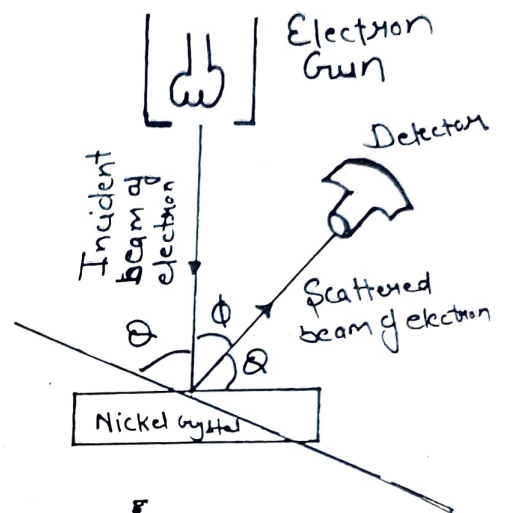 Electron
Gun
Detector
Incident
beam of
electron
Scattered
beam of electron
θ
ϕ
θ
Nickel Crystal